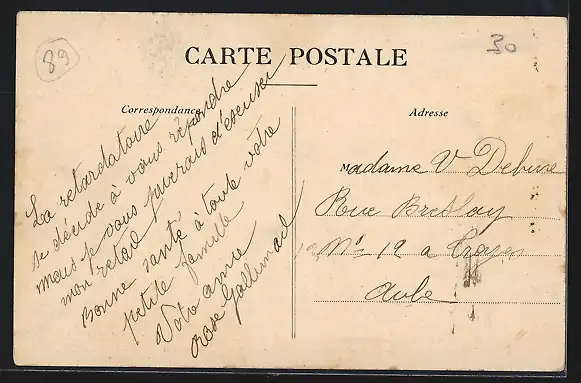 89
30
CARTE POSTALE
Correspondance
Adresse
La retardataire
se décide à vous répondre
mais je vous
mon retard
Bonne santé à toute votre
petite famille
Votre amie
Rose
Madame V Debuse
Rue Breslay
No 12 a Troyes
Aube